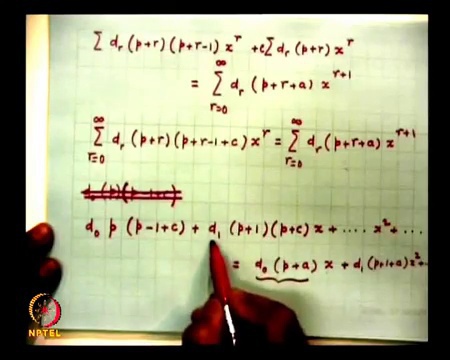 ∑ d_r (p+r)(p+r-1) x^r + c∑ d_r (p+r) x^r
= ∑_{r=0}^{∞} d_r (p+r+a) x^{r+1}
∑_{r=0}^{∞} d_r (p+r)(p+r-1+c) x^r = ∑_{r=0}^{∞} d_r (p+r+a) x^{r+1}
d_0 p (p-1+c) + d_1 (p+1)(p+c) x + .... x^2 + ...
= d_0 (p+a) x + d_1 (p+1+a) x^2 ...
NPTEL